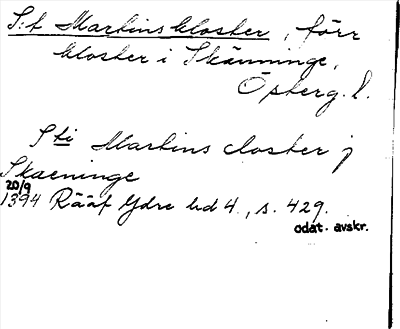 S:t Martins kloster, förr
kloster i Skänninge,
Östergl.
Sti Martins closter j
Skaeninge
20/9
1394 Rääf Ydre bd 4., s. 429.
odat. avskr.